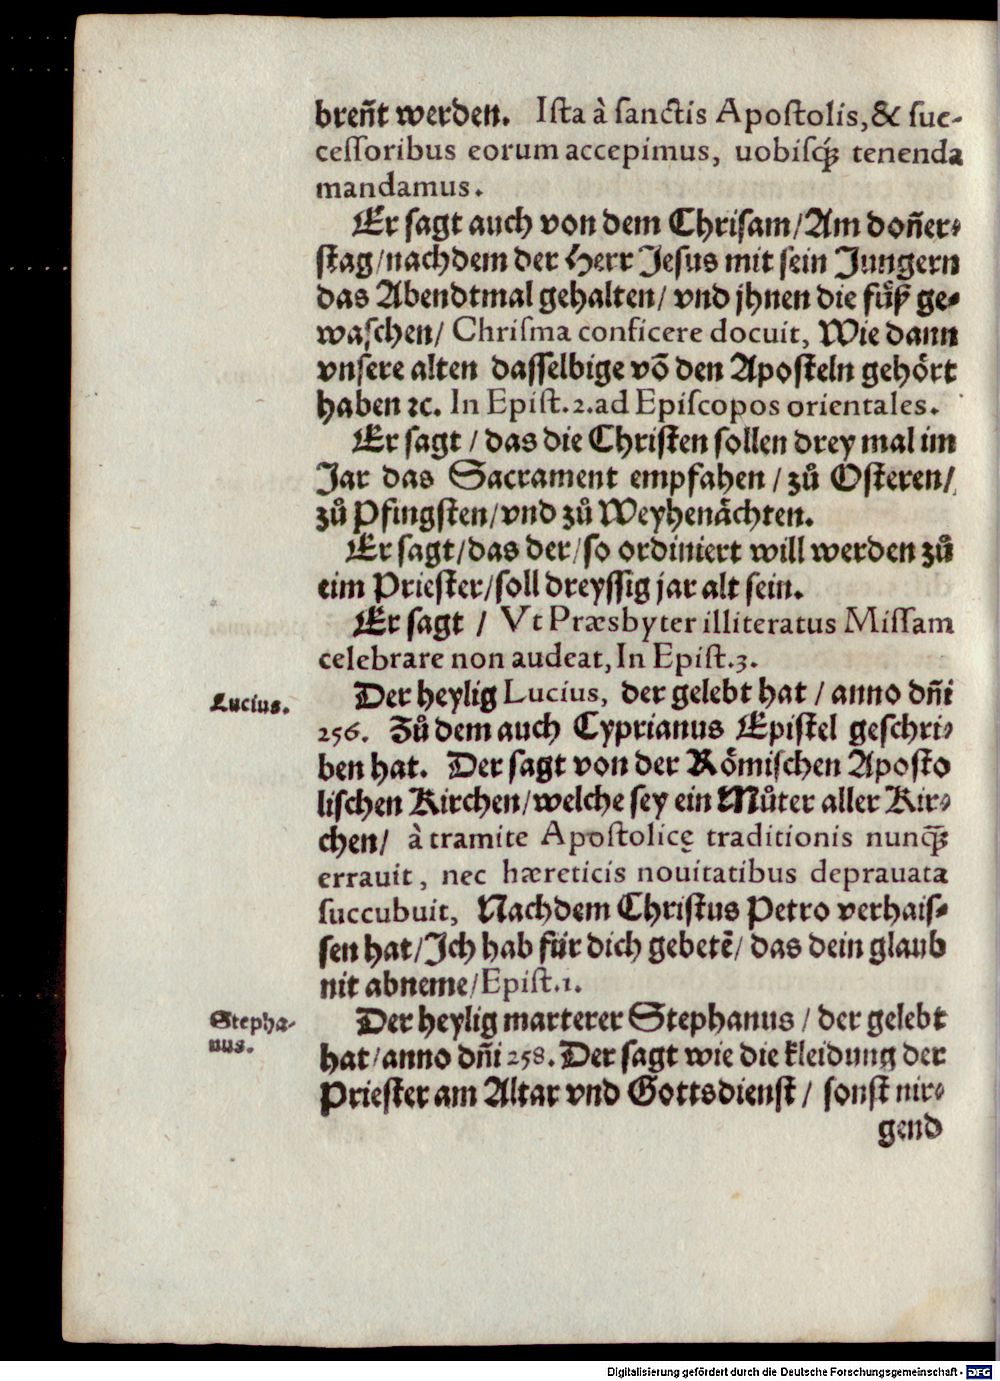 breñt werden. Ista à sanctis Apostolis, & suc-
cessoribus eorum accepimus, uobisq́; tenenda
mandamus.
Er sagt auch von dem Chrisam/Am doñer-
stag/nachdem der Herr Jesus mit sein Jungern
das Abendtmal gehalten/ vnd jhnen die fuͤß ge-
waschen/ Chrisma conficere docuit, Wie dann
vnsere alten dasselbige võ den Aposteln gehoͤrt
haben ꝛc. In Epist.2.ad Episcopos orientales.
Er sagt / das die Christen sollen drey mal im
Jar das Sacrament empfahen / zuͦ Osteren/
zuͦ Pfingsten/vnd zuͦ Weyhenaͤchten.
Er sagt/das der/so ordiniert will werden zuͦ
eim Priester/soll dreyssig jar alt sein.
Er sagt / Vt Præsbyter illiteratus Missam
celebrare non audeat, In Epist.3.
Lucius.
Der heylig Lucius, der gelebt hat / anno dñi
256. Zuͦ dem auch Cyprianus Epistel geschri-
ben hat. Der sagt von der Roͤmischen Aposto
lischen Kirchen/welche sey ein Muͦter aller Kir-
chen/ à tramite Apostolicę traditionis nunq̃;
errauit, nec hæreticis nouitatibus deprauata
succubuit, Nachdem Christus Petro verhais-
sen hat/Ich hab für dich gebetẽ/ das dein glaub
nit abneme/Epist.1.
Stepha-
nus.
Der heylig marterer Stephanus / der gelebt
hat/anno dñi 258. Der sagt wie die kleidung der
Priester am Altar vnd Gottsdienst / sonst nir-
gend
Digitalisierung gefördert durch die Deutsche Forschungsgemeinschaft - DFG